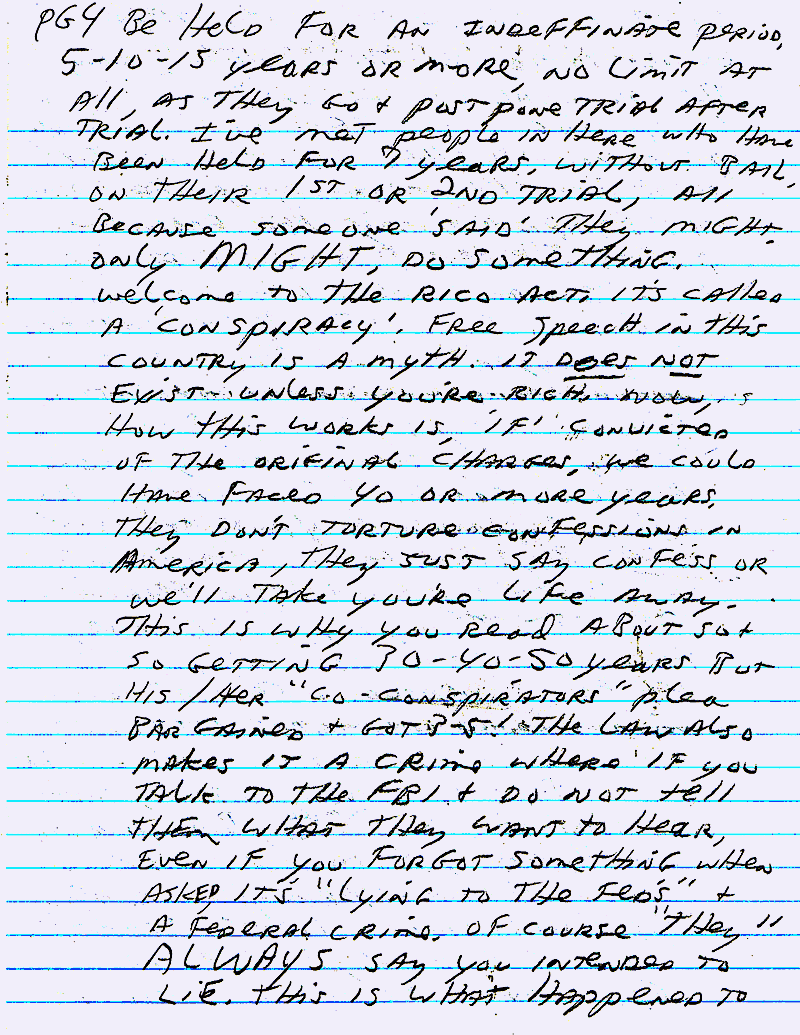 PG4 Be HeLD FOR AN INDEFFINATE PERIOD,
5-10-15 years OR more, NO LIMIT AT
All, AS THey GO + POSTPONE TRIAL AFTER
TRIAL. I've meT people IN HERE WHO HAVE
BEEN HELD FOR 7 years, WITHOUT BAIL,
ON THEIR 1ST OR 2ND TRIAL, All
BECAUSE SOMEONE 'SAID' THEy MIGHT,
ONLy MIGHT, DO SOMETHING.
Welcome to THE RICO ACT. IT'S CALLED
A 'CONSPIRACY'. FREE SPEECH IN THIS
COUNTRY IS A myTH. IT DOES NOT
EXIST UNLESS YOU'RE RICH. NOW,
HOW THIS WORKS IS, 'IF' CONVICTED
OF THE ORIGINAL CHARGES, WE COULD
HAVE FACED 40 OR MORE years.
THEy DON'T TORTURE CONFESSIONS IN
AMERICA, THEy JUST SAY CONFESS OR
We'll TAKE YOU'RE LIFE AWAY.
THIS IS WHY YOU READ ABOUT SO +
SO GETTING 30-40-50 years BUT
HIS/HER "CO-CONSPIRATORS" plea
BARGAINED + GOT 3-5! THE LAW ALSO
MAKES IT A CRIME WHERE IF YOU
TALK TO THE FBI + DO NOT tell
THEM WHAT THEY WANT TO HEAR,
EVEN IF YOU FORGOT SOMETHING WHEN
ASKED, IT'S "LYING TO THE FEDS" +
A FEDERAL CRIME. OF COURSE "THEY"
ALWAYS SAY YOU INTENDED TO
LIE. THIS IS WHAT HAPPENED TO